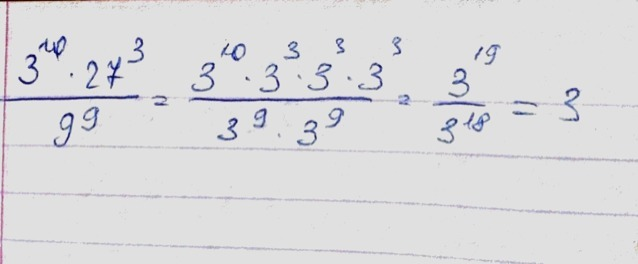 3^10 · 27^3 / 9^9 = 3^10 · 3^3 · 3^3 · 3^3 / 3^9 · 3^9 = 3^19 / 3^18 = 3